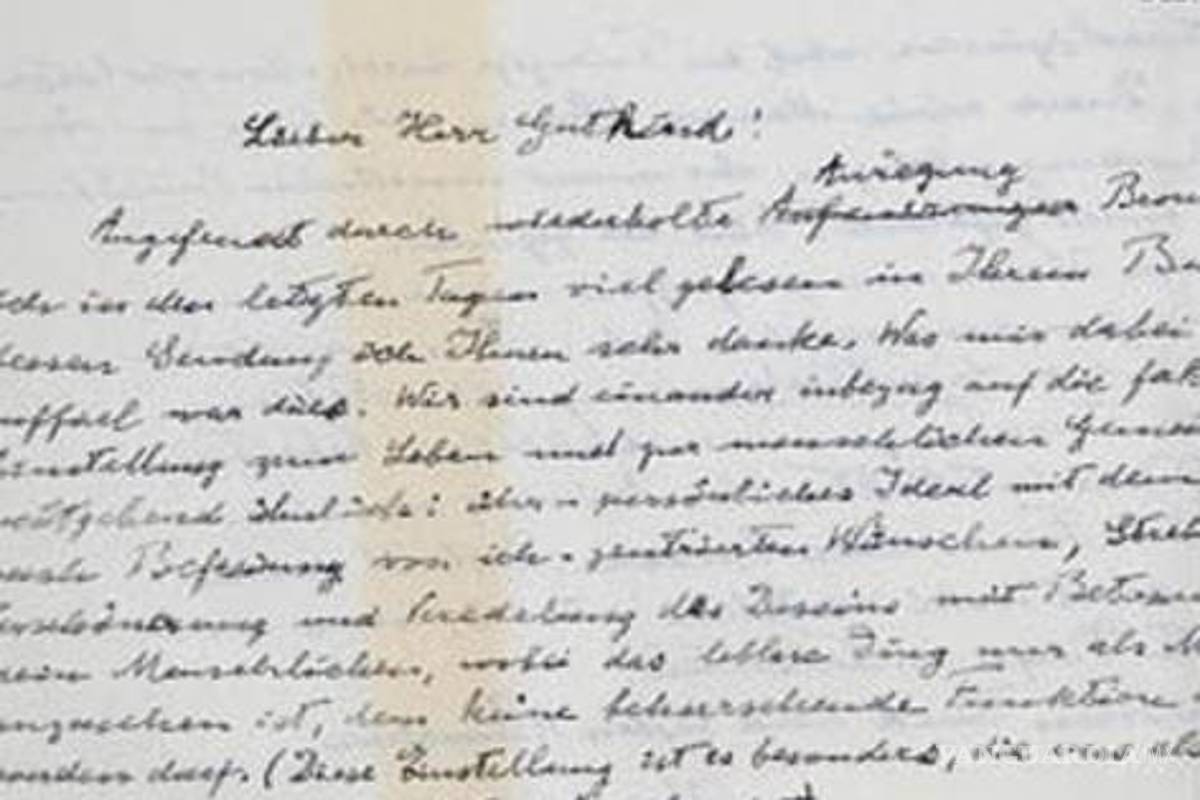 Lieber Herr Gutkind!
Anregung
Angefeudt durch wiederholte Brou
ich in den letzten Tagen viel gelesen in Ihrem Bu
dessen Sendung ich Ihnen sehr danke. Was mir dabei
auffiel war dies. Wir sind einander inbezug auf die fak
Einstellung zum Leben und zur menschlichen Gemein
weitgehend ähnlich: über-persönliches Ideal mit dem
nach Befreiung von ich-zentrierten Wünschen, Streb
Verschönerung und Veredelung des Daseins mit Beton
rein Menschlichen, wobei das leblose Ding nur als M
anzusehen ist, dem keine beherrschende Funktion
werden darf. (Diese Einstellung ist es besonders, die
VANGUARDIA MX